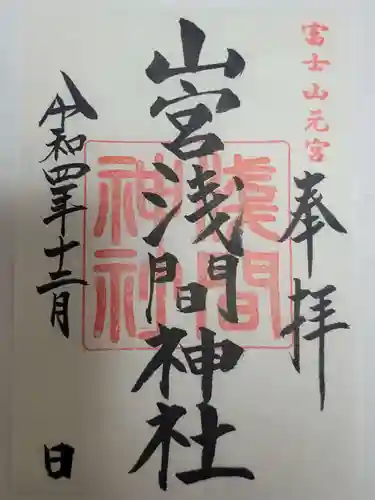 富士山元宮
奉拝
山宮浅間神社
淺間
神社
令和四年十二月
日